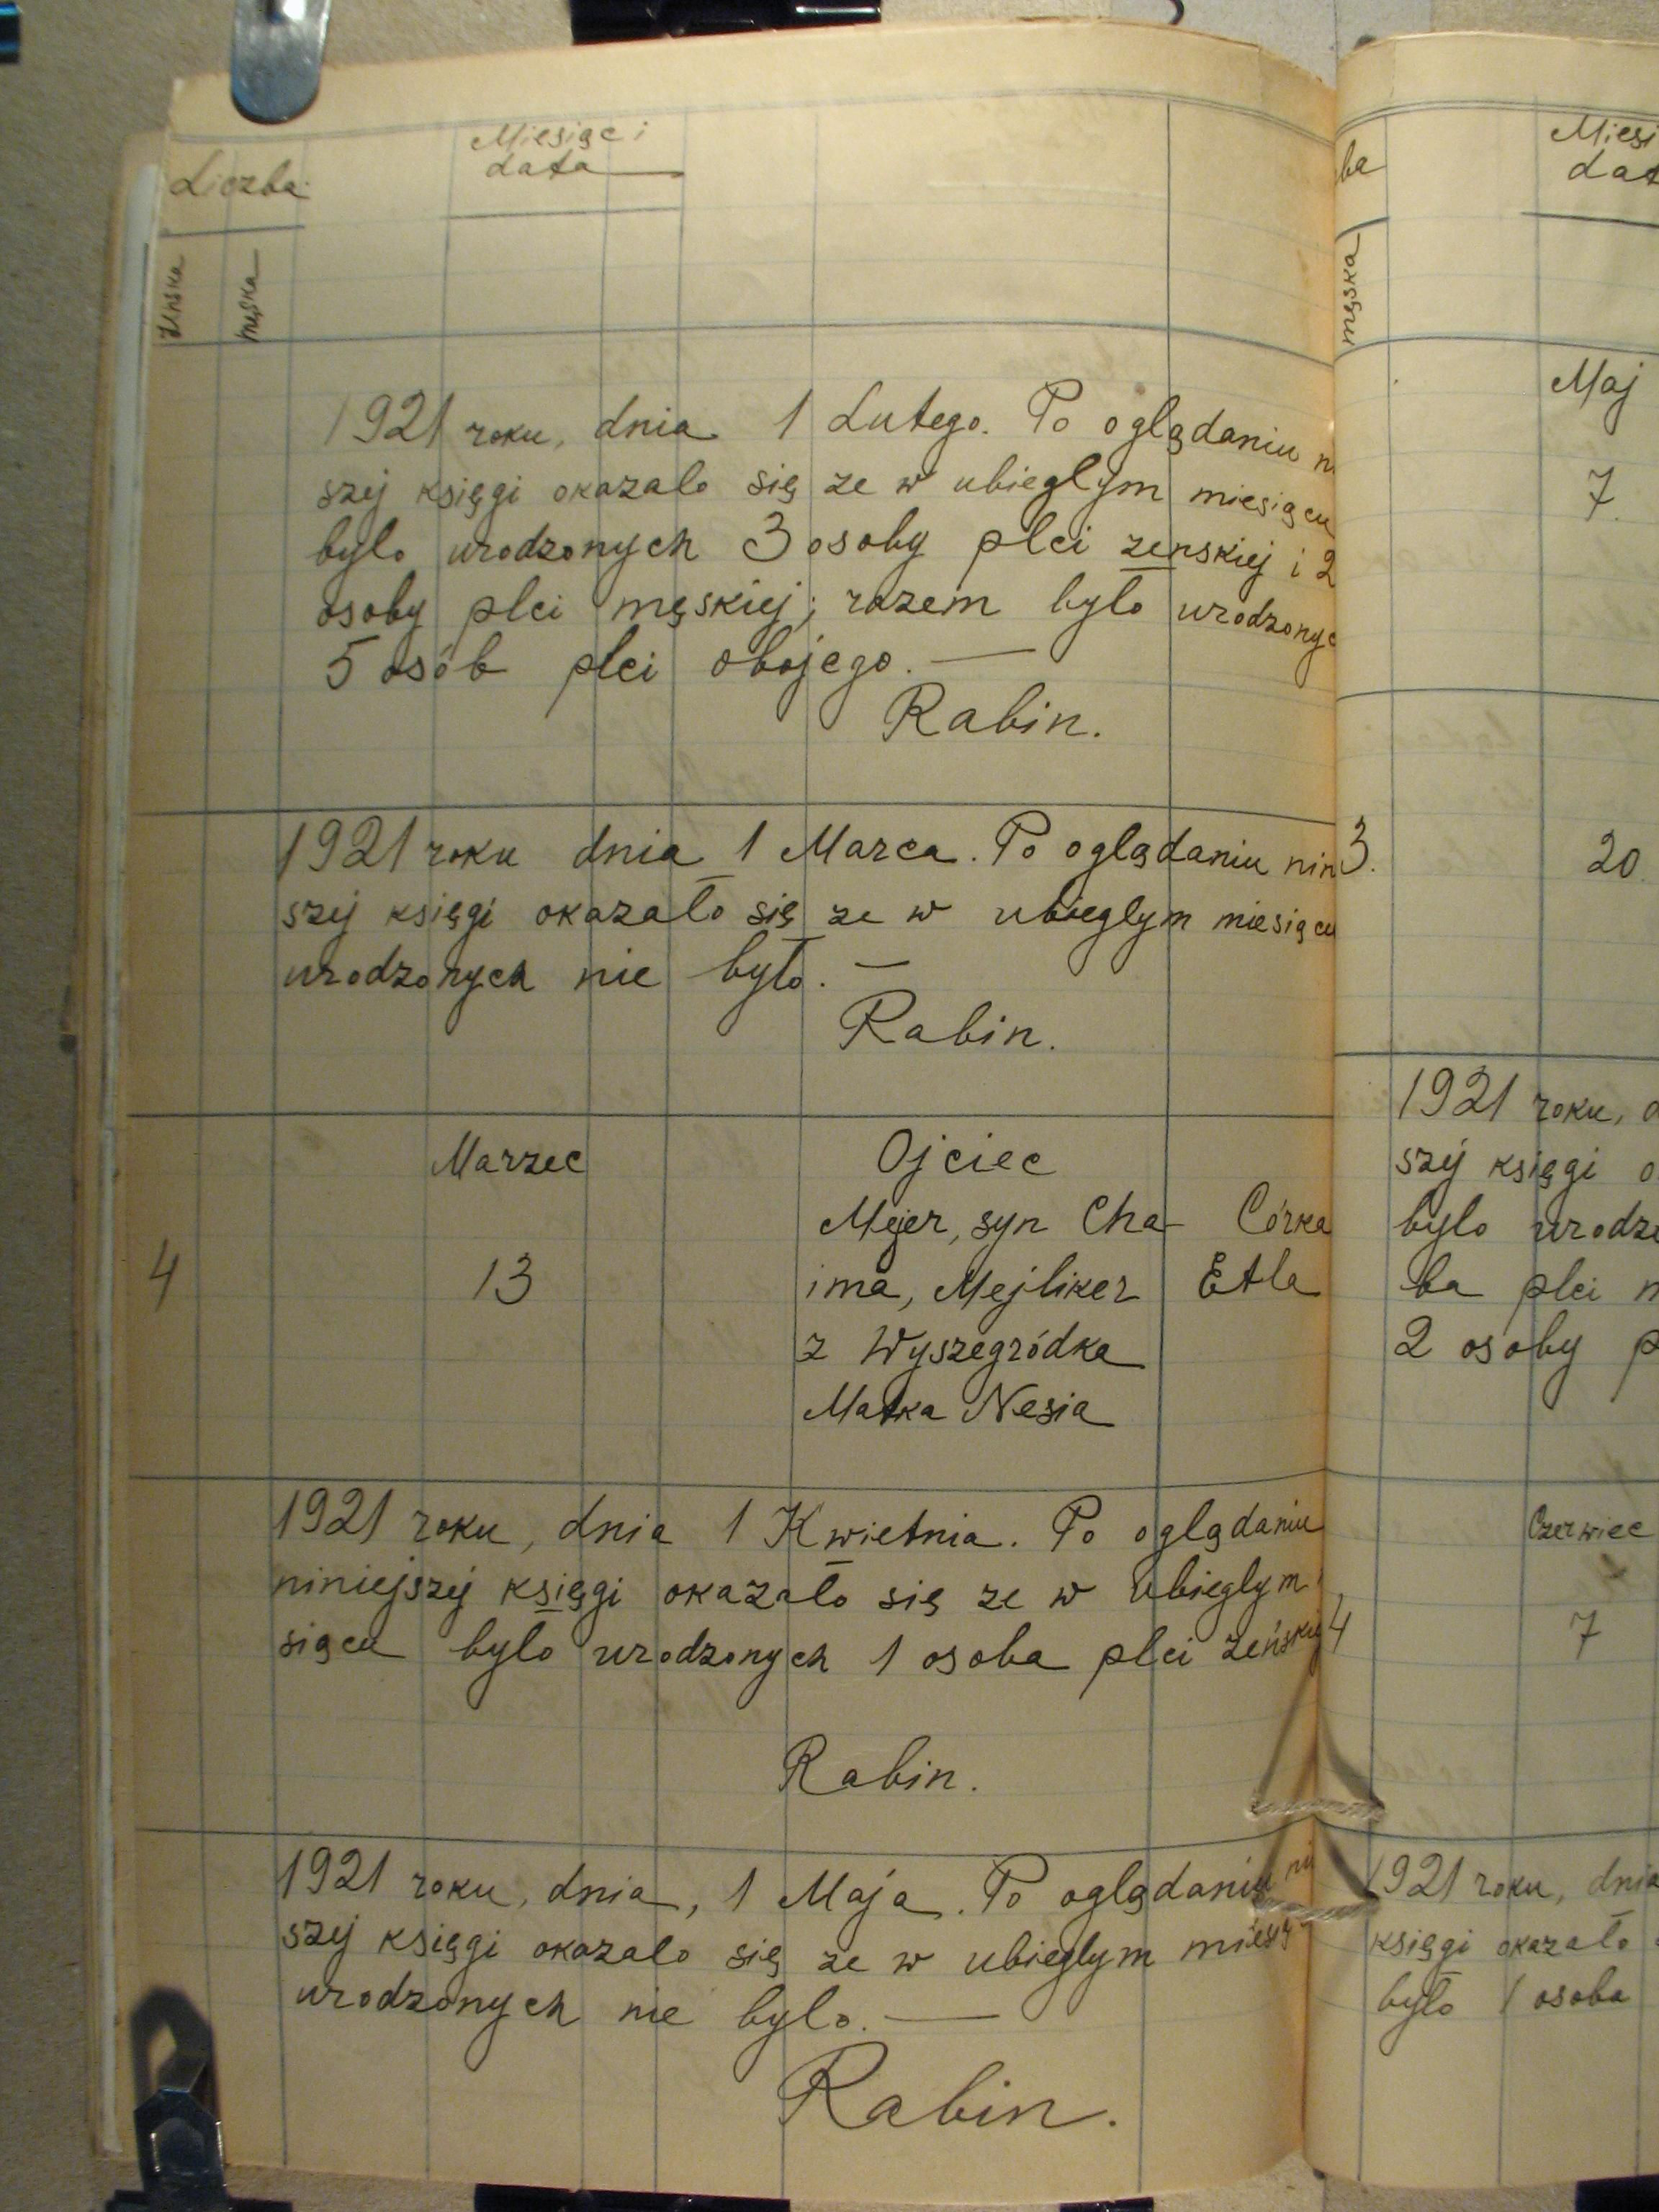 Miesiąc i
Liczba data
żeńska męska
1921 roku, dnia 1 Lutego. Po oglądaniu
szej księgi okazalo się ze w ubieglym miesiącu
bylo urodzonych 3 osoby plci zenskiej i 2
osoby plci męskiej; razem bylo urodzonyc
5 osób plci obojego. —
Rabin.
1921 roku dnia 1 Marca. Po oglądaniu nin
szej księgi okazało się ze w ubieglym miesiącu
urodzonych nie było. —
Rabin.
Marzec Ojciec
Mejer, syn Cha- Córka
4 13 ima, Mejliker Etla
z Wyszegródka
Matka Nesia
1921 roku, dnia 1 Kwietnia. Po oglądaniu
niniejszej księgi okazało się ze w ubieglym
siącu bylo urodzonych 1 osoba plci żeńskiej
Rabin.
1921 roku, dnia, 1 Maja. Po oglądaniu ni
szej księgi okazalo się ze w ubieglym miesią
urodzonych nie bylo. —
Rabin.
ba Miesi
dat
męska
Maj
7.
3. 20.
1921 roku, d
szej księgi o
bylo urodzo
ba plci m
2 osoby p
Czerwiec
4 7
1921 roku, dnia
księgi okazało
było 1 osoba